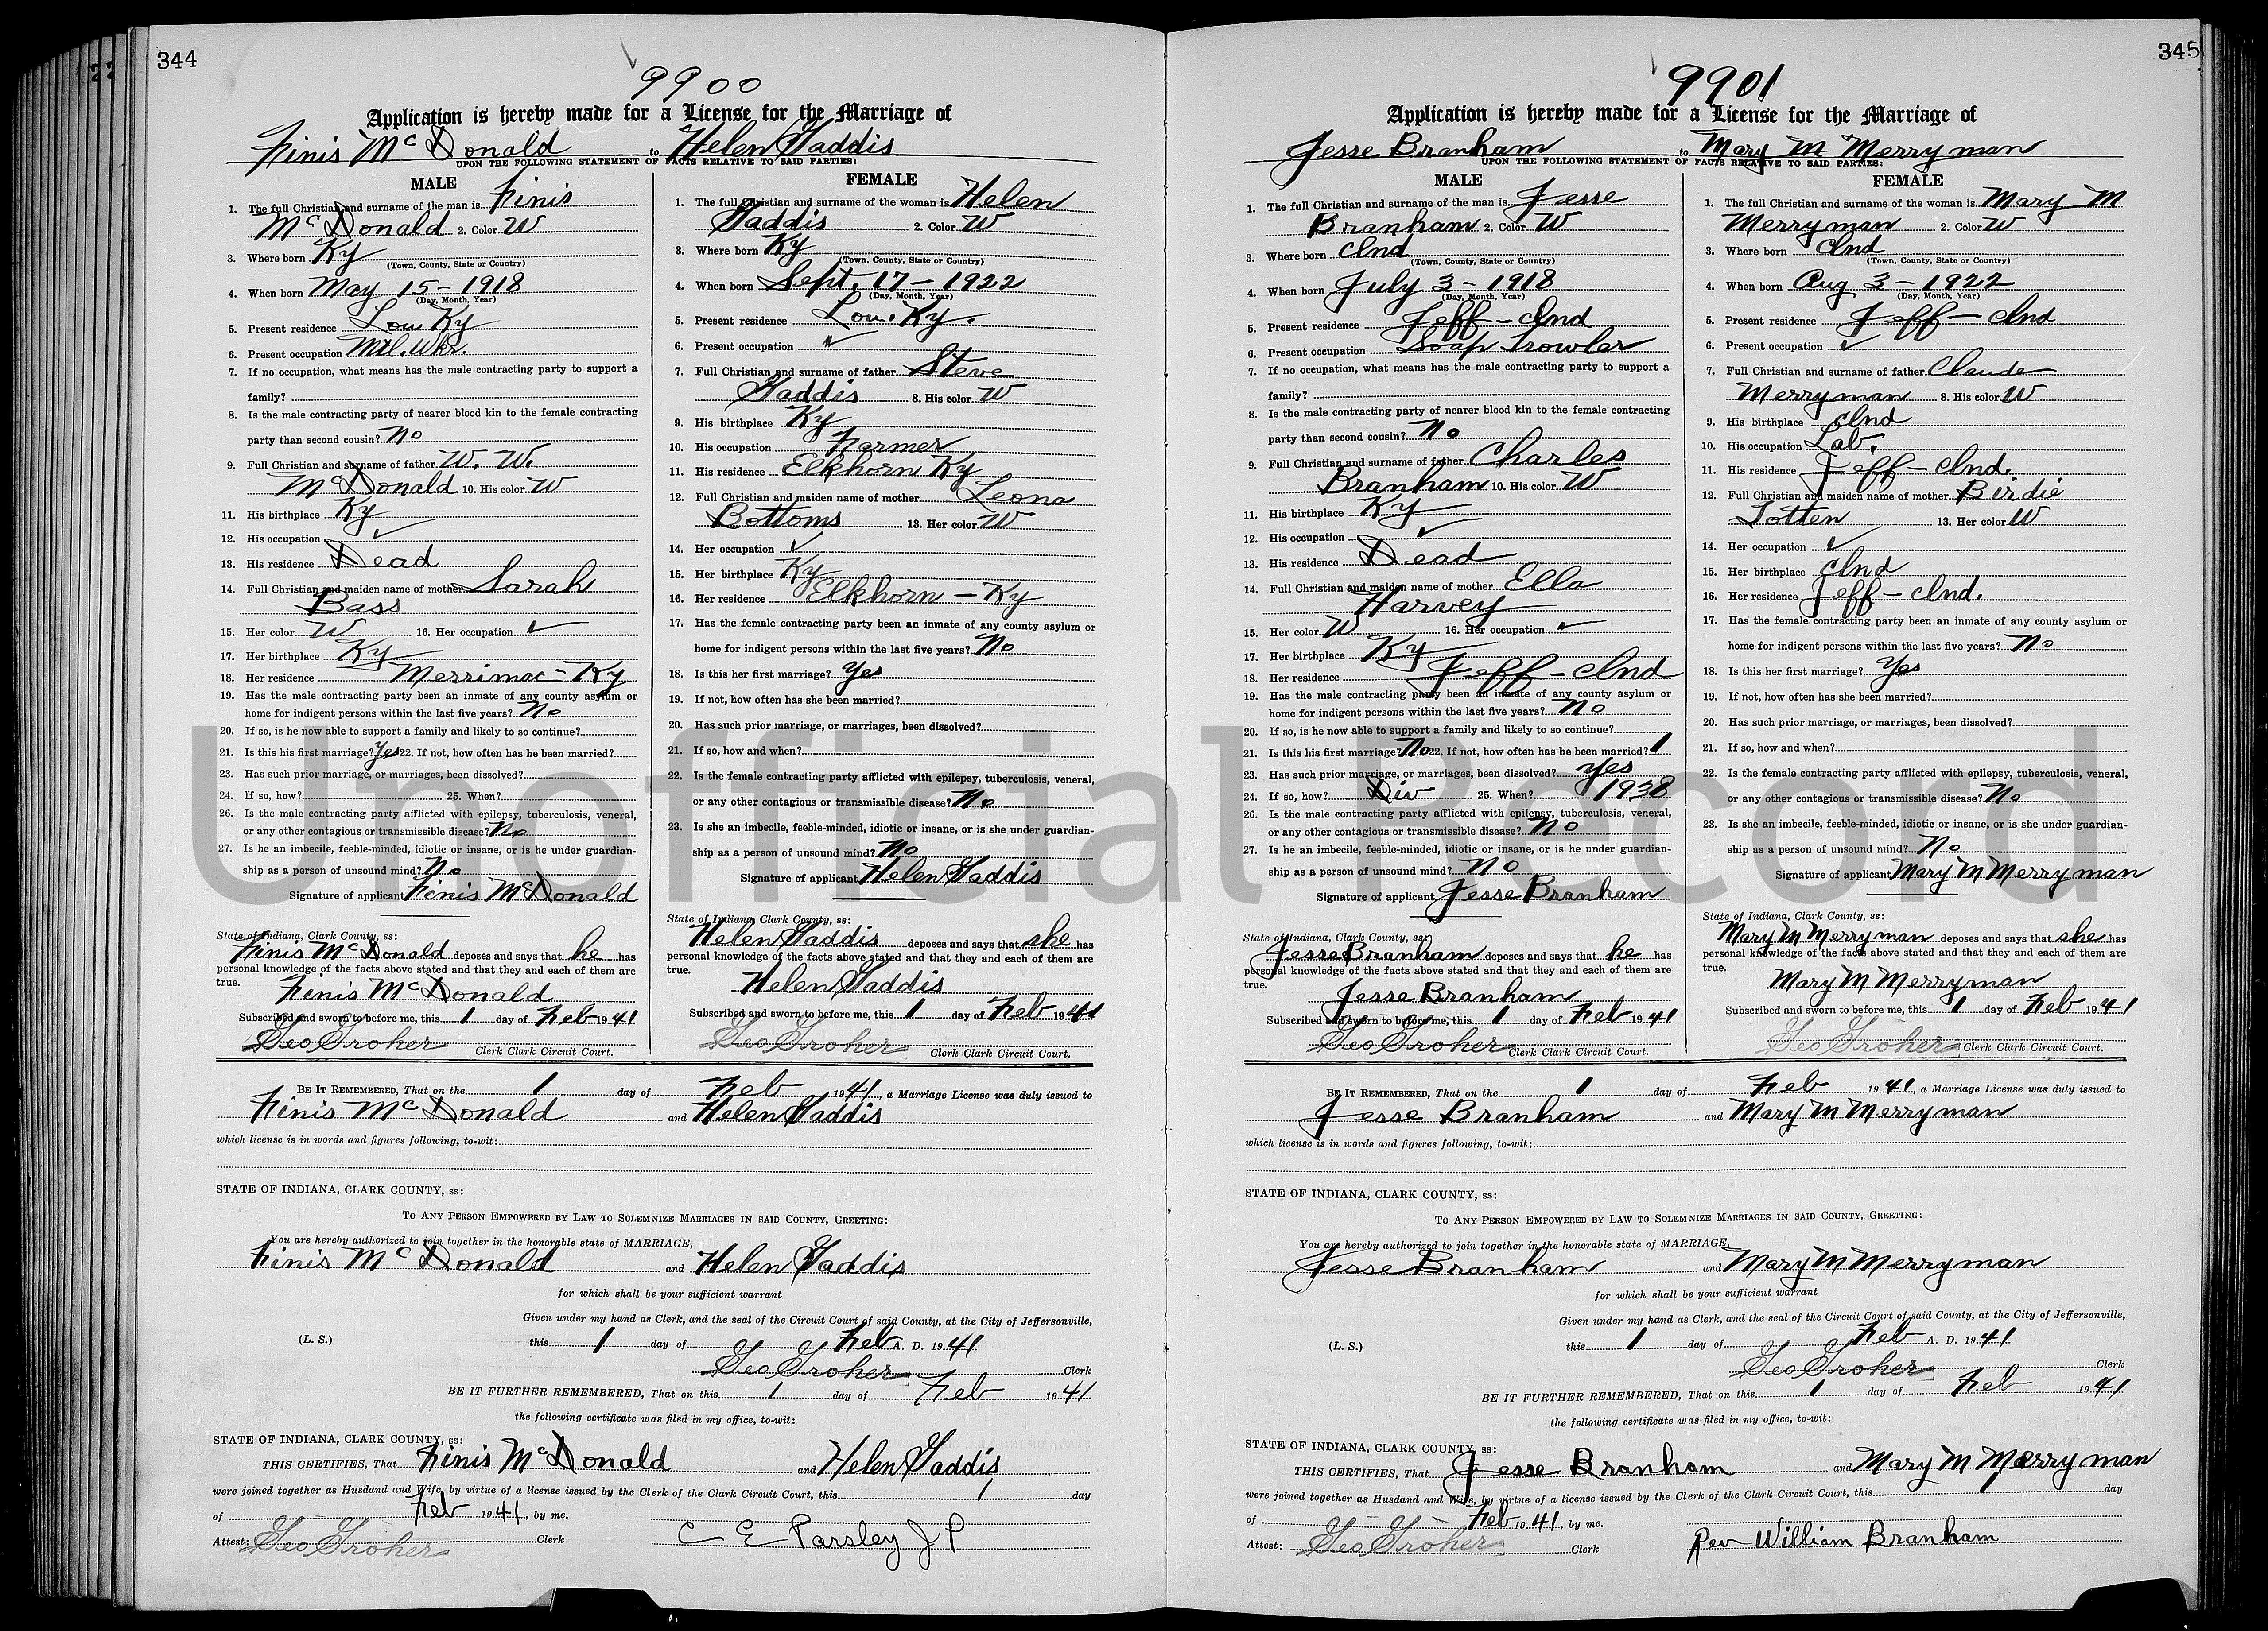 344
9900
Application is hereby made for a License for the Marriage of
Finis McDonald to Helen Gaddis
UPON THE FOLLOWING STATEMENT OF FACTS RELATIVE TO SAID PARTIES:
MALE
1. The full Christian and surname of the man is Finis
McDonald 2. Color W
3. Where born Ky
(Town, County, State or Country)
4. When born May 15 - 1918
(Day, Month, Year)
5. Present residence Lou Ky
6. Present occupation Mtl. Wkr.
7. If no occupation, what means has the male contracting party to support a
family?
8. Is the male contracting party of nearer blood kin to the female contracting
party than second cousin? No
9. Full Christian and surname of father W. W.
McDonald 10. His color W
11. His birthplace Ky
12. His occupation ✓
13. His residence Dead
14. Full Christian and maiden name of mother Sarah
Bass
15. Her color W 16. Her occupation ✓
17. Her birthplace Ky
18. Her residence Merrimac - Ky
19. Has the male contracting party been an inmate of any county asylum or
home for indigent persons within the last five years? No
20. If so, is he now able to support a family and likely to so continue?
21. Is this his first marriage? Yes 22. If not, how often has he been married?
23. Has such prior marriage, or marriages, been dissolved?
24. If so, how? 25. When?
26. Is the male contracting party afflicted with epilepsy, tuberculosis, veneral,
or any other contagious or transmissible disease? No
27. Is he an imbecile, feeble-minded, idiotic or insane, or is he under guardian-
ship as a person of unsound mind? No
Signature of applicant Finis McDonald
State of Indiana, Clark County, ss:
Finis McDonald deposes and says that he has
personal knowledge of the facts above stated and that they and each of them are
true.
Finis McDonald
Subscribed and sworn to before me, this 1 day of Feb 1941
Geo Groher Clerk Clark Circuit Court.
FEMALE
1. The full Christian and surname of the woman is Helen
Gaddis 2. Color W
3. Where born Ky
(Town, County, State or Country)
4. When born Sept. 17 - 1922
(Day, Month, Year)
5. Present residence Lou. Ky.
6. Present occupation ✓
7. Full Christian and surname of father Steve
Gaddis 8. His color W
9. His birthplace Ky
10. His occupation Farmer
11. His residence Elkhorn Ky
12. Full Christian and maiden name of mother Leona
Bottoms 13. Her color W
14. Her occupation ✓
15. Her birthplace Ky
16. Her residence Elkhorn - Ky
17. Has the female contracting party been an inmate of any county asylum or
home for indigent persons within the last five years? No
18. Is this her first marriage? Yes
19. If not, how often has she been married?
20. Has such prior marriage, or marriages, been dissolved?
21. If so, how and when?
22. Is the female contracting party afflicted with epilepsy, tuberculosis, veneral,
or any other contagious or transmissible disease? No
23. Is she an imbecile, feeble-minded, idiotic or insane, or is she under guardian-
ship as a person of unsound mind? No
Signature of applicant Helen Gaddis
State of Indiana, Clark County, ss:
Helen Gaddis deposes and says that she has
personal knowledge of the facts above stated and that they and each of them are
true.
Helen Gaddis
Subscribed and sworn to before me, this 1 day of Feb 1941
Geo Groher Clerk Clark Circuit Court.
BE IT REMEMBERED, That on the 1 day of Feb 1941, a Marriage License was duly issued to
Finis McDonald and Helen Gaddis
which license is in words and figures following, to-wit:
STATE OF INDIANA, CLARK COUNTY, ss:
TO ANY PERSON EMPOWERED BY LAW TO SOLEMNIZE MARRIAGES IN SAID COUNTY, GREETING:
You are hereby authorized to join together in the honorable state of MARRIAGE,
Finis McDonald and Helen Gaddis
for which shall be your sufficient warrant
Given under my hand as Clerk, and the seal of the Circuit Court of said County, at the City of Jeffersonville,
(L. S.) this 1 day of Feb A. D. 1941
Geo Groher Clerk
BE IT FURTHER REMEMBERED, That on this 1 day of Feb 1941
the following certificate was filed in my office, to-wit:
STATE OF INDIANA, CLARK COUNTY, ss:
THIS CERTIFIES, That Finis McDonald and Helen Gaddis
were joined together as Husdand and Wife, by virtue of a license issued by the Clerk of the Clark Circuit Court, this 1 day
of Feb 1941, by me.
Attest: Geo Groher Clerk C E Parsley J P
345
9901
Application is hereby made for a License for the Marriage of
Jesse Branham to Mary M Merryman
UPON THE FOLLOWING STATEMENT OF FACTS RELATIVE TO SAID PARTIES:
MALE
1. The full Christian and surname of the man is Jesse
Branham 2. Color W
3. Where born Ind
(Town, County, State or Country)
4. When born July 3 - 1918
(Day, Month, Year)
5. Present residence Jeff - Ind
6. Present occupation Soap Trowler
7. If no occupation, what means has the male contracting party to support a
family?
8. Is the male contracting party of nearer blood kin to the female contracting
party than second cousin? No
9. Full Christian and surname of father Charles
Branham 10. His color W
11. His birthplace Ky
12. His occupation ✓
13. His residence Dead
14. Full Christian and maiden name of mother Ella
Harvey
15. Her color W 16. Her occupation ✓
17. Her birthplace Ky
18. Her residence Jeff - Ind
19. Has the male contracting party been an inmate of any county asylum or
home for indigent persons within the last five years? No
20. If so, is he now able to support a family and likely to so continue?
21. Is this his first marriage? No 22. If not, how often has he been married? 1
23. Has such prior marriage, or marriages, been dissolved? Yes
24. If so, how? Div 25. When? 1938
26. Is the male contracting party afflicted with epilepsy, tuberculosis, veneral,
or any other contagious or transmissible disease? No
27. Is he an imbecile, feeble-minded, idiotic or insane, or is he under guardian-
ship as a person of unsound mind? No
Signature of applicant Jesse Branham
State of Indiana, Clark County, ss:
Jesse Branham deposes and says that he has
personal knowledge of the facts above stated and that they and each of them are
true.
Jesse Branham
Subscribed and sworn to before me, this 1 day of Feb 1941
Geo Groher Clerk Clark Circuit Court.
FEMALE
1. The full Christian and surname of the woman is Mary M
Merryman 2. Color W
3. Where born Ind
(Town, County, State or Country)
4. When born Aug 3 - 1922
(Day, Month, Year)
5. Present residence Jeff - Ind
6. Present occupation ✓
7. Full Christian and surname of father Claude
Merryman 8. His color W
9. His birthplace Ind
10. His occupation Lab.
11. His residence Jeff - Ind.
12. Full Christian and maiden name of mother Birdie
Totten 13. Her color W
14. Her occupation ✓
15. Her birthplace Ind
16. Her residence Jeff - Ind.
17. Has the female contracting party been an inmate of any county asylum or
home for indigent persons within the last five years? No
18. Is this her first marriage? Yes
19. If not, how often has she been married?
20. Has such prior marriage, or marriages, been dissolved?
21. If so, how and when?
22. Is the female contracting party afflicted with epilepsy, tuberculosis, veneral,
or any other contagious or transmissible disease? No
23. Is she an imbecile, feeble-minded, idiotic or insane, or is she under guardian-
ship as a person of unsound mind? No
Signature of applicant Mary M Merryman
State of Indiana, Clark County, ss:
Mary M Merryman deposes and says that she has
personal knowledge of the facts above stated and that they and each of them are
true.
Mary M Merryman
Subscribed and sworn to before me, this 1 day of Feb 1941
Geo Groher Clerk Clark Circuit Court.
BE IT REMEMBERED, That on the 1 day of Feb 1941, a Marriage License was duly issued to
Jesse Branham and Mary M Merryman
which license is in words and figures following, to-wit:
STATE OF INDIANA, CLARK COUNTY, ss:
TO ANY PERSON EMPOWERED BY LAW TO SOLEMNIZE MARRIAGES IN SAID COUNTY, GREETING:
You are hereby authorized to join together in the honorable state of MARRIAGE,
Jesse Branham and Mary M Merryman
for which shall be your sufficient warrant
Given under my hand as Clerk, and the seal of the Circuit Court of said County, at the City of Jeffersonville,
(L. S.) this 1 day of Feb A. D. 1941
Geo Groher Clerk
BE IT FURTHER REMEMBERED, That on this 1 day of Feb 1941
the following certificate was filed in my office, to-wit:
STATE OF INDIANA, CLARK COUNTY, ss:
THIS CERTIFIES, That Jesse Branham and Mary M Merryman
were joined together as Husdand and Wife, by virtue of a license issued by the Clerk of the Clark Circuit Court, this 1 day
of Feb 1941, by me.
Attest: Geo Groher Clerk Rev William Branham
Unofficial Record